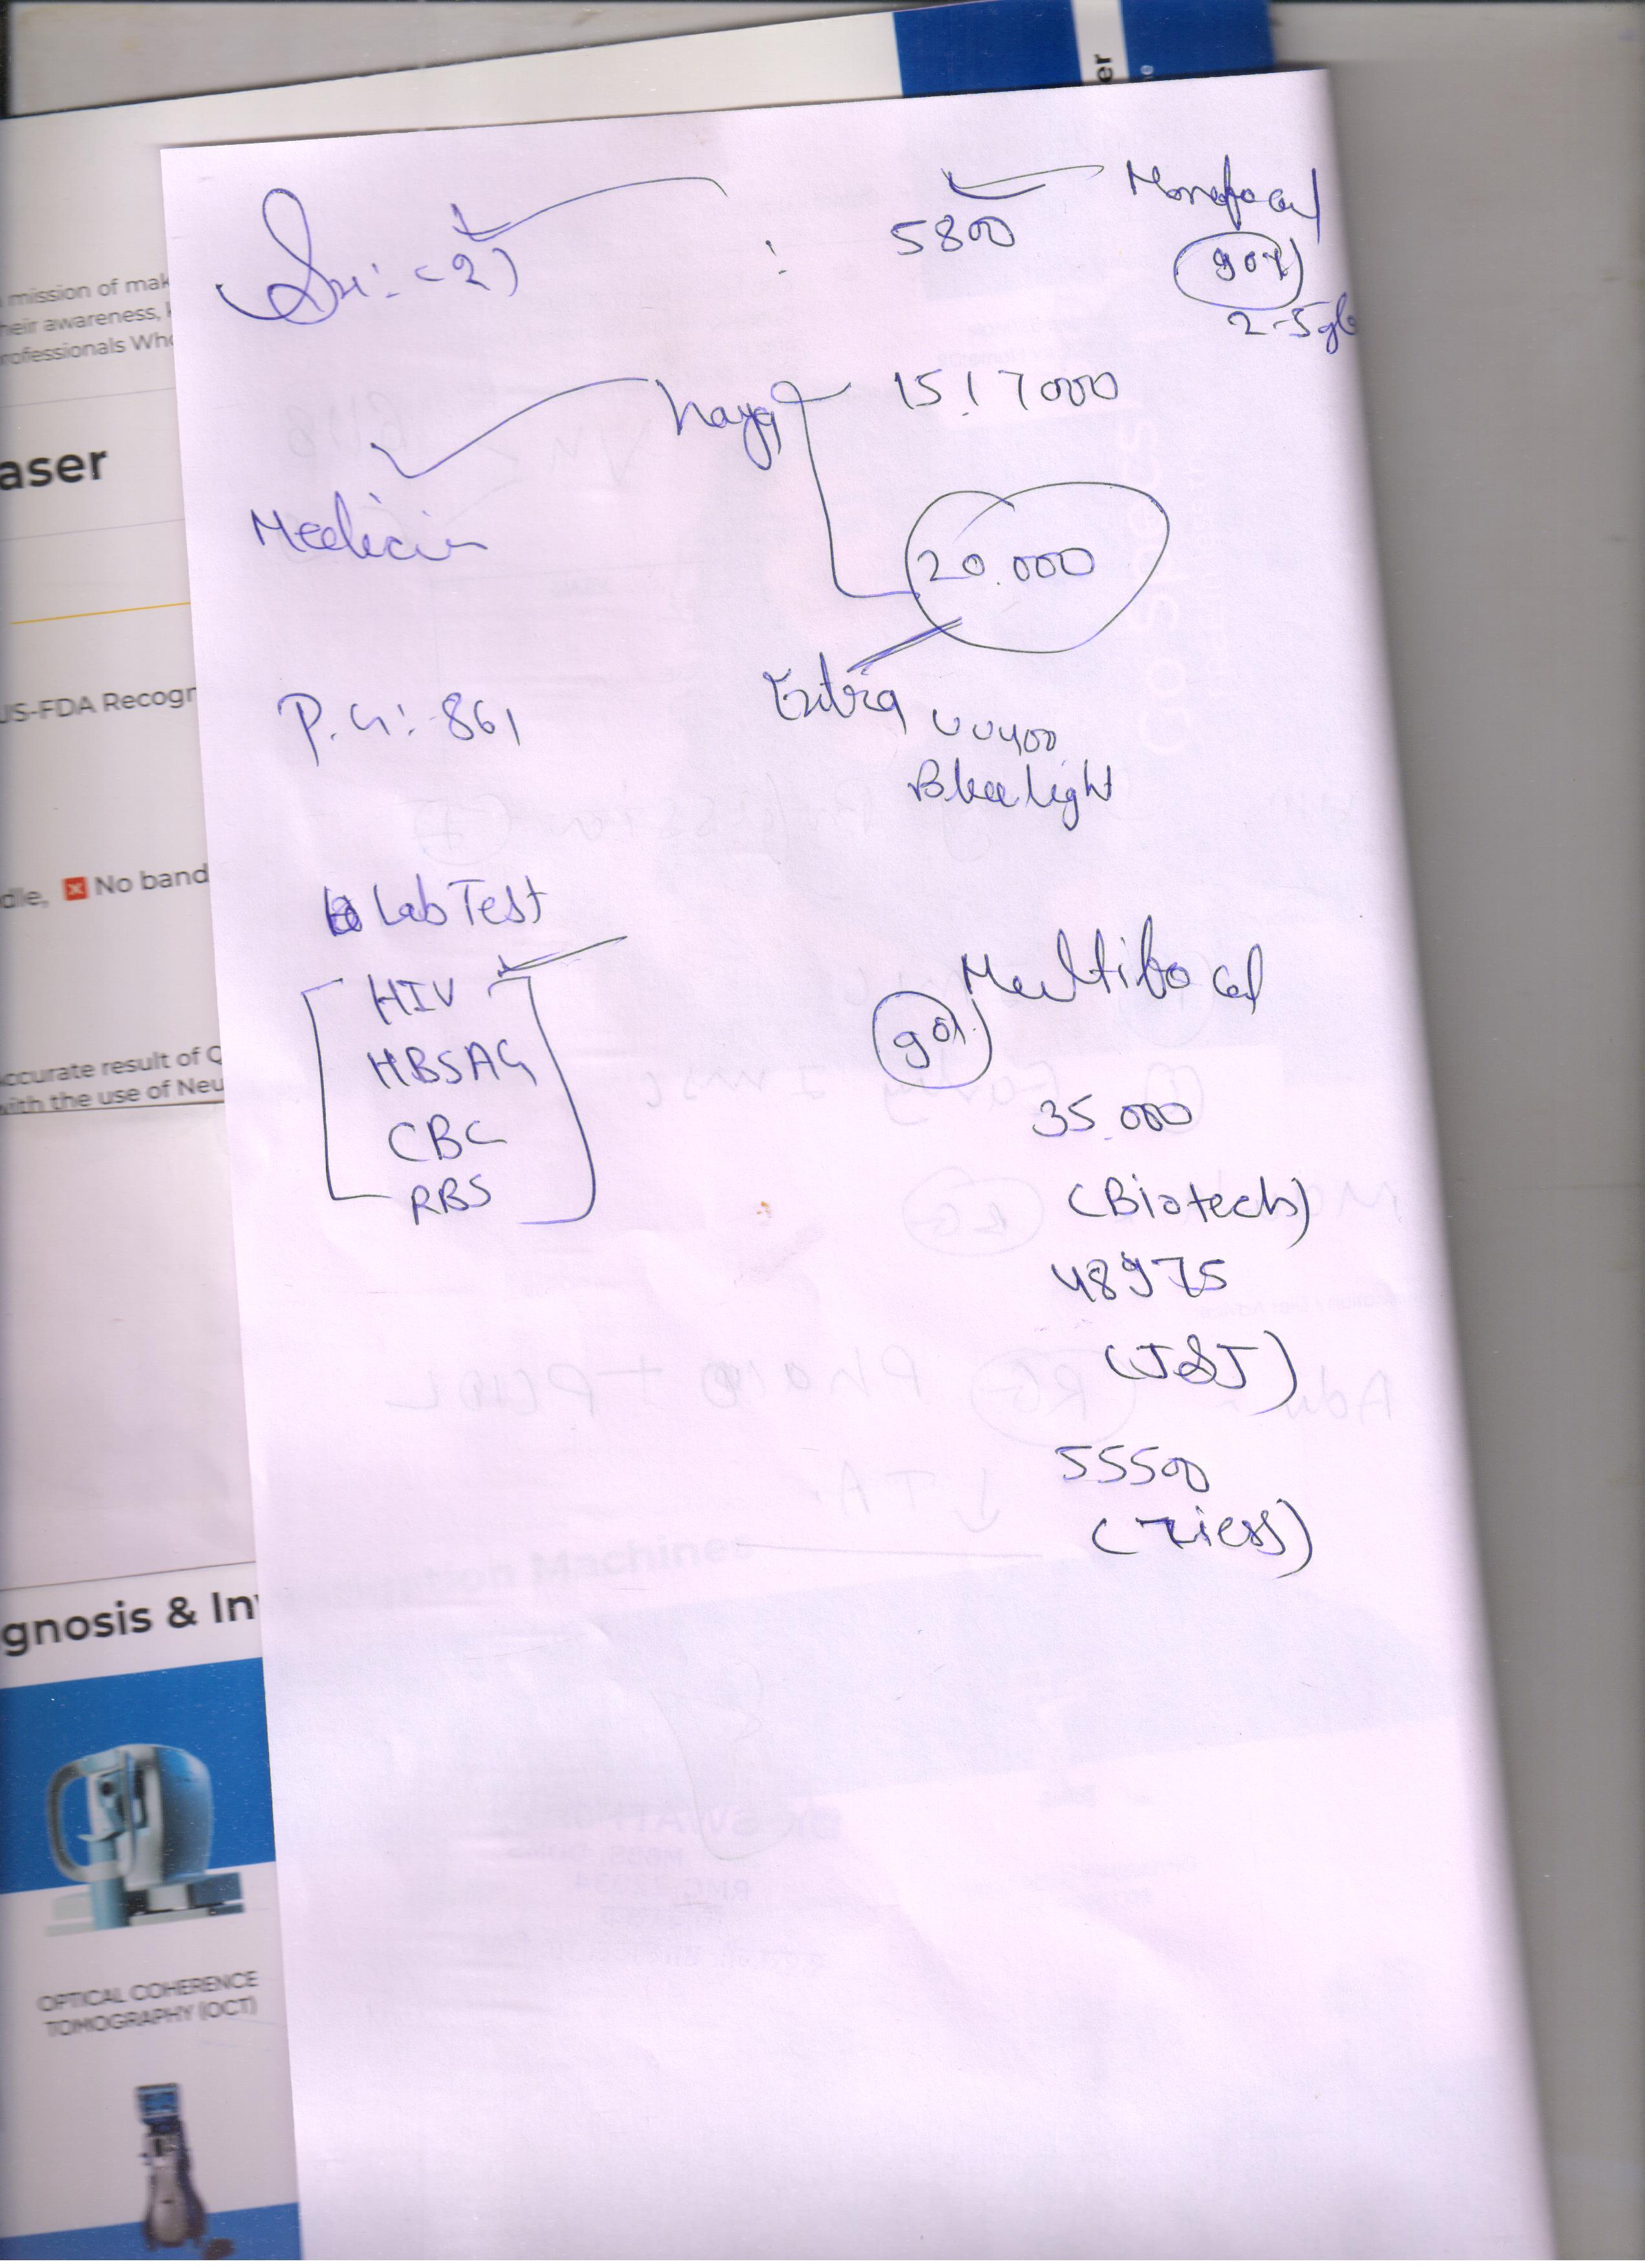 er
mission of mak
heir awareness,
rofessionals Who
aser
US-FDA Recogn
dle, No band
ccurate result of
with the use of Neu
gnosis & In
OPTICAL COHERENCE
TOMOGRAPHY (OCT)
Monofocal
5800
90%
2-5
15/17000
Medicin
20.000
P.G:-861
Extra
UV400
Blue light
Lab Test
HIV
HBSAG
CBC
RBS
Multifocal
90%
35.000
(Biotech)
48975
(J&J)
55500
(Ziess)